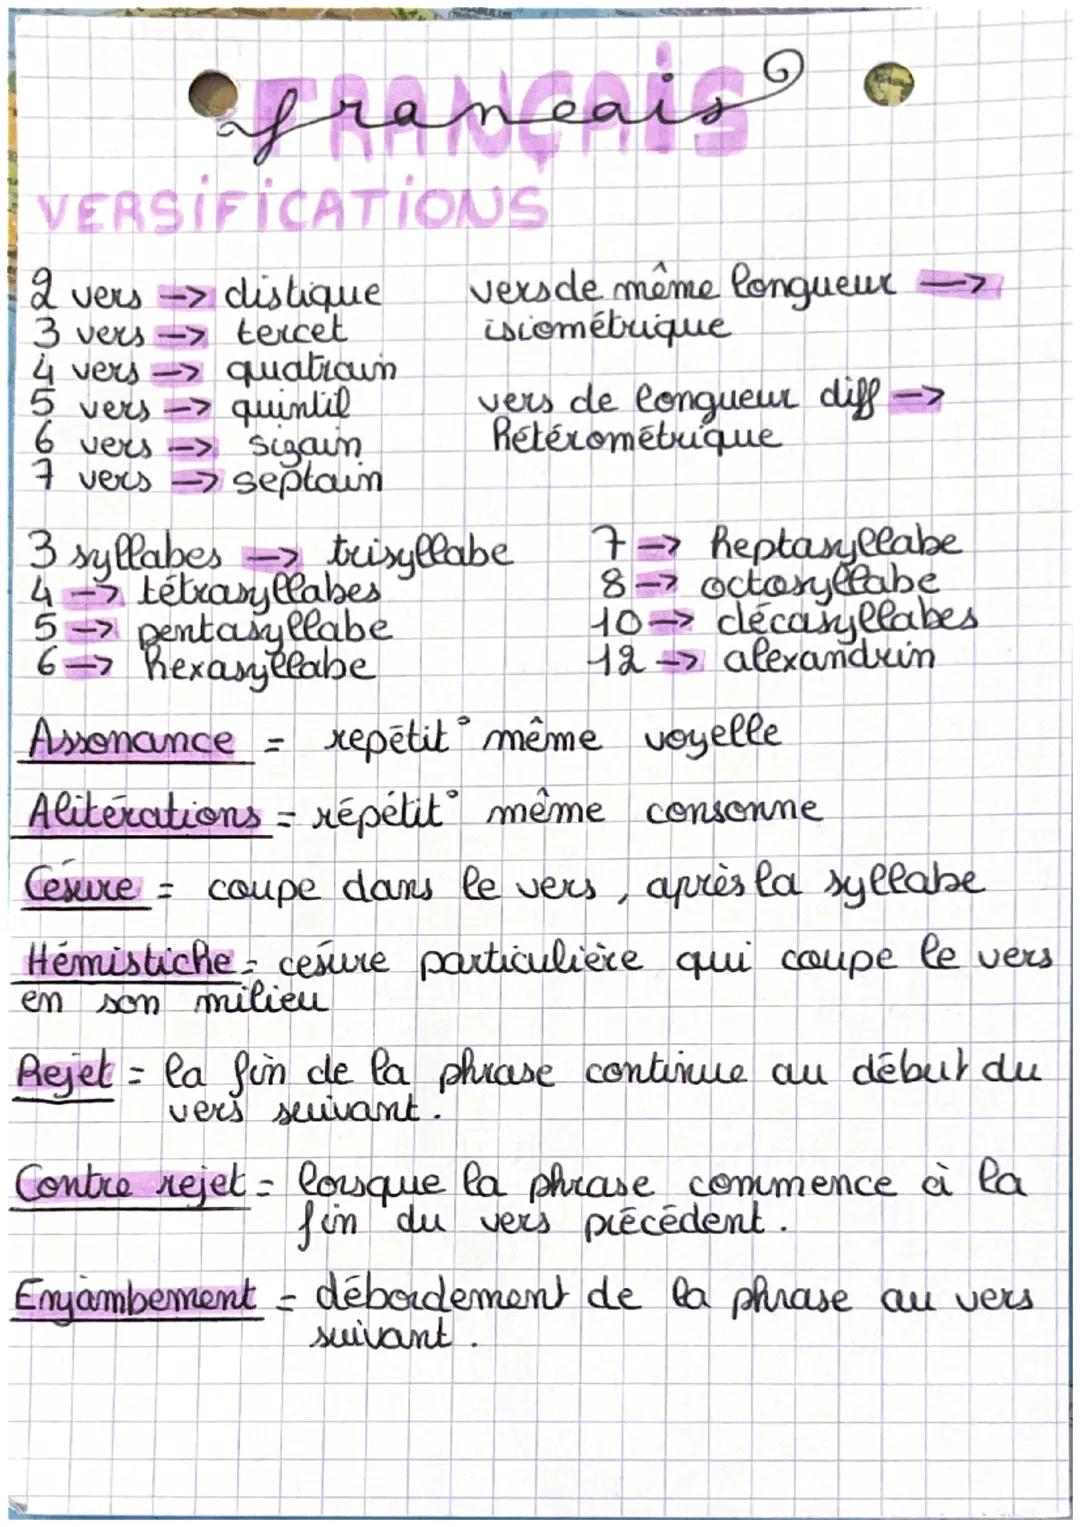 FRANÇAiS
francais
VERSiFiCATiONS
2 vers -> distique
3 vers -> tercet
4 vers -> quatrain
5 vers -> quintil
6 vers -> sizain
7 vers -> septain
vers de même longueur ->
isiométrique
vers de longueur diff ->
hétérométrique
3 syllabes -> trisyllabe
4 -> tétrasyllabes
5 -> pentasyllabe
6 -> hexasyllabe
7 -> heptasyllabe
8 -> octosyllabe
10 -> décasyllabes
12 -> alexandrin
Assonance = repétit° même voyelle
Alitérations = répétit° même consonne
Césure = coupe dans le vers, après la syllabe
Hémistiche = césure particulière qui coupe le vers
en son milieu
Rejet = la fin de la phrase continue au début du
vers suivant.
Contre rejet = lorsque la phrase commence à la
fin du vers précédent.
Enjambement = débordement de la phrase au vers
suivant.